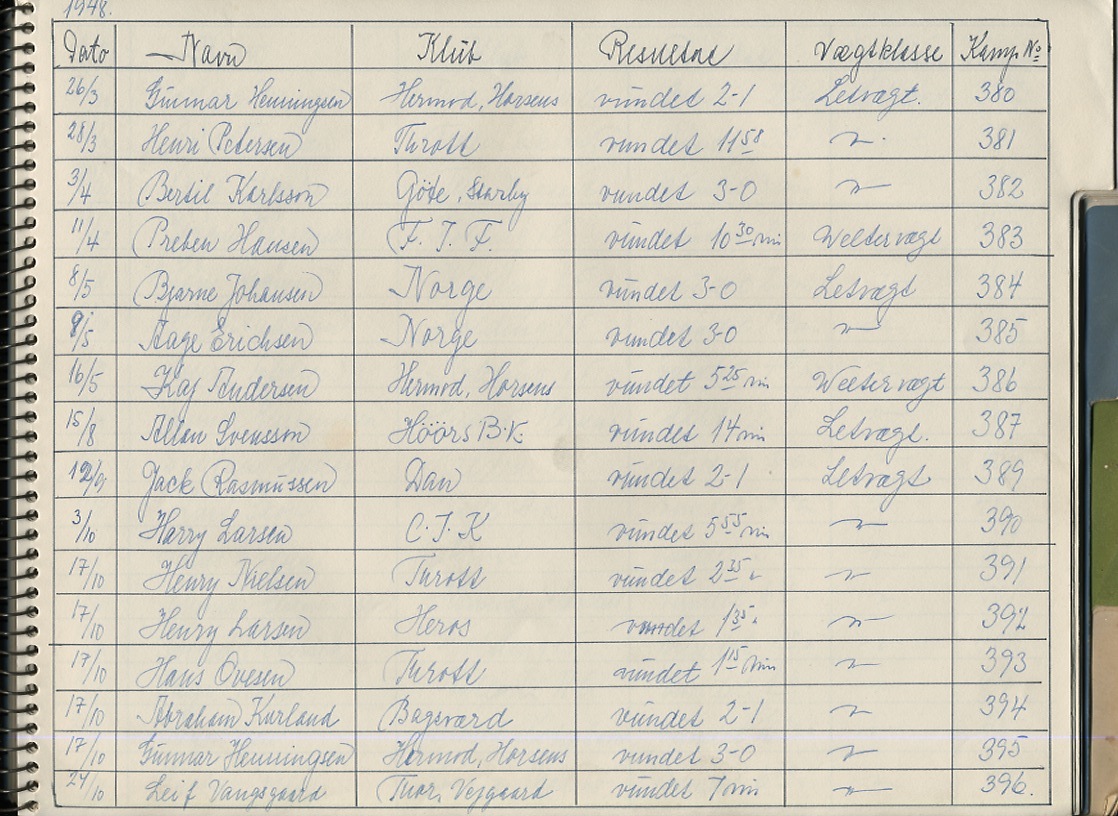 1948.
Dato Navn Klub Resultat Vægtklasse Kamp No
26/3 Gunnar Henningsen Hermod, Horsens vundet 2-1 Letvægt. 380
28/3 Henri Petersen Thrott vundet 11 58 " 381
3/4 Bertil Karlsson Göte, vundet 3-0 " 382
11/4 Preben Hansen F. I. F. vundet 10 30 min Weltervægt 383
8/5 Bjarne Johansen Norge vundet 3-0 Letvægt 384
9/5 Aage Erichsen Norge vundet 3-0 " 385
16/5 Kaj Andersen Hermod, Horsens vundet 5 25 min Weltervægt 386
15/8 Allan Svensson Höörs B.K. vundet 14 min Letvægt. 387
12/9 Jack Rasmussen Dan vundet 2-1 Letvægt 389
3/10 Harry Larsen C.I.K vundet 5 55 min " 390
17/10 Henry Nielsen Thrott vundet 2 35 " " 391
17/10 Henry Larsen Heros vundet 1 35 " " 392
17/10 Hans Ovesen Thrott vundet 1 15 min " 393
17/10 Abraham Kurland Bagsværd vundet 2-1 " 394
17/10 Gunnar Henningsen Hermod, Horsens vundet 3-0 " 395
24/10 Leif Vangsgaard Thor, Vejgaard vundet 7 min " 396.